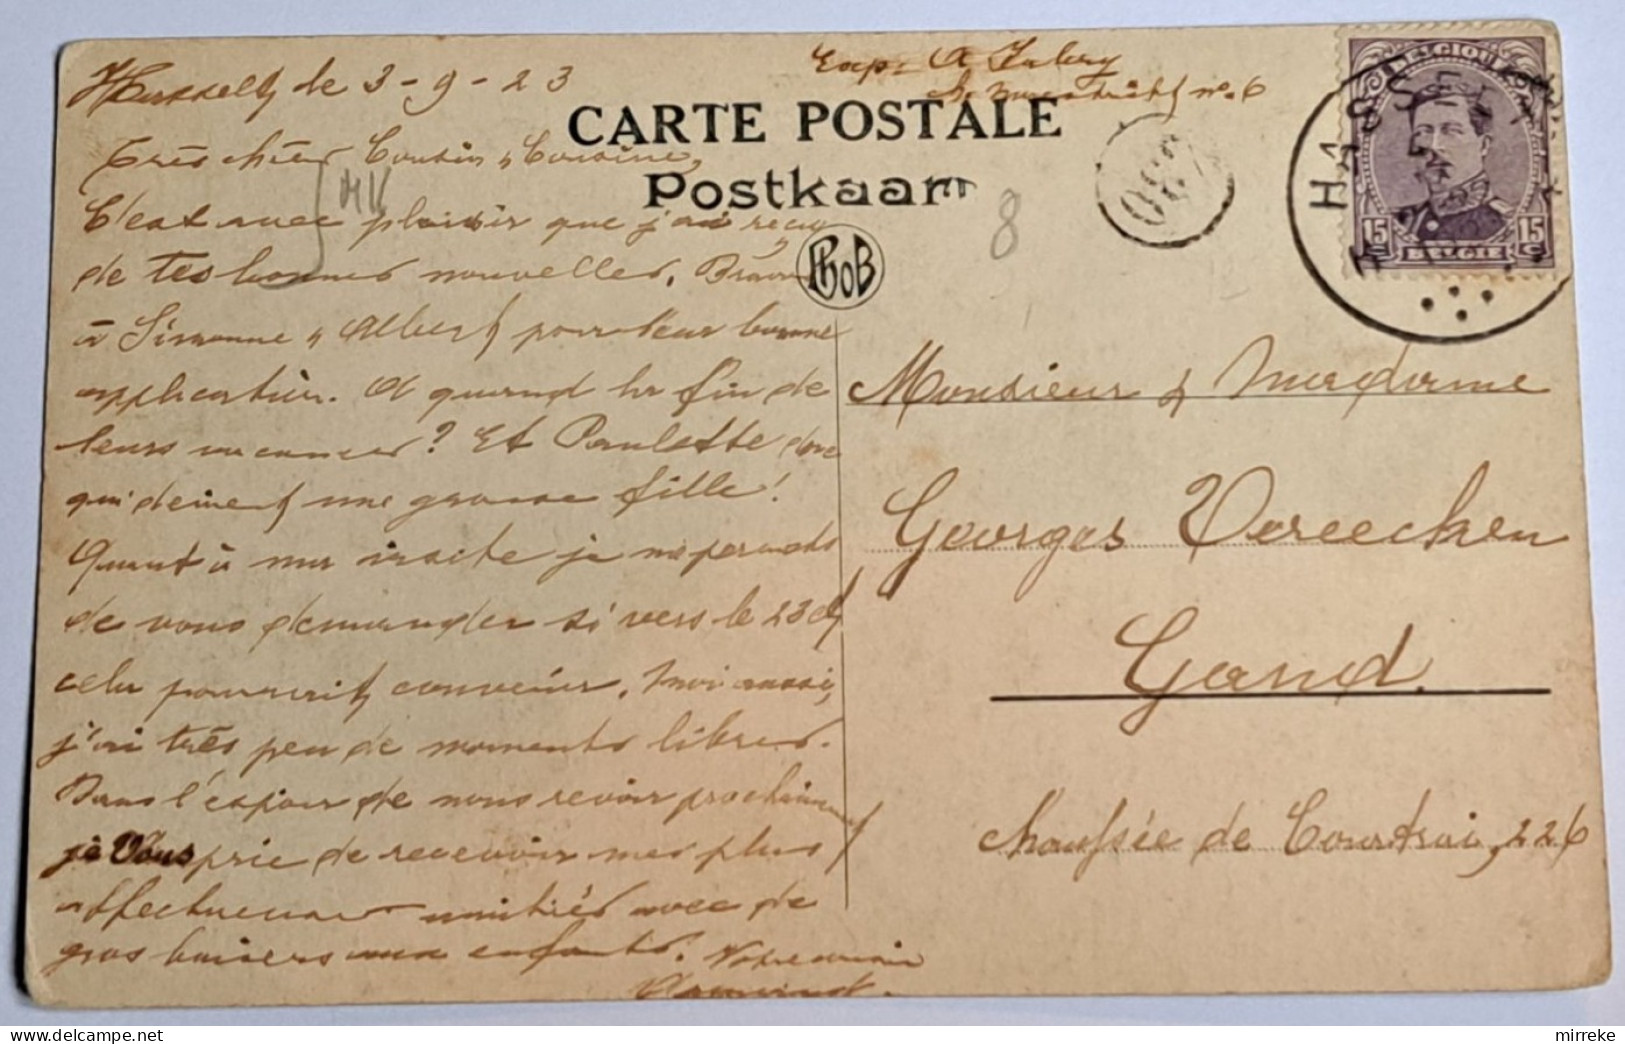 Hasselt, le 3-9-23
Exp: A Fabry
n° 6
CARTE POSTALE
Postkaart
Très chèrs Cousin & Cousine,
C'est avec plaisir que j'ai reçu
de tes bonnes nouvelles. Bravo
à Simonne & Albert pour leur bonne
application. A quand la fin de
leurs vacances? Et Paulette donc
qui devient une grosse fille!
Quant à ma visite je me permets
de vous demander si vers le 23 ct
cela pourrait convenir. Moi aussi,
j'ai très peu de moments libres.
Dans l'espoir de nous revoir prochainement
je vous prie de recevoir mes plus
affectueuses amitiés avec de
gros baisers aux enfants. Votre ami
Armand.
PhoB
8
HASSELT
BELGIQUE
15 c
15 c
BELGIË
Monsieur & Madame
Georges Vereecken
Gand
Chaussée de Courtrai, 226
mirreke